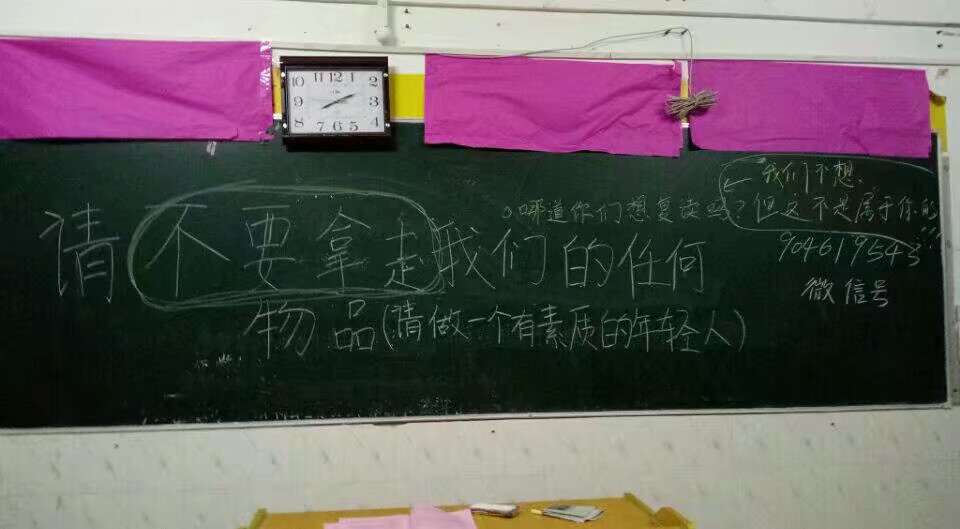 10 11 12 1 2
9 3
8 7 6 5 4
我们不想.
。哪道你们想复读吗? 但这不是属于你的!!!
请不要拿走我们的任何
904619543
微信号
物品(请做一个有素质的年轻人)